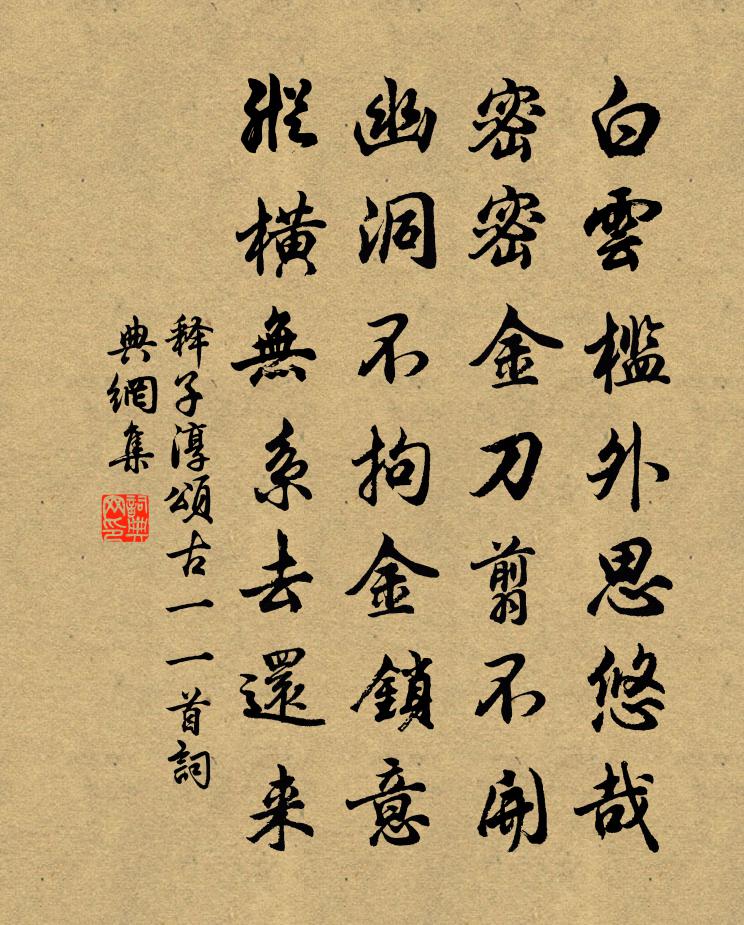 白雲檻外思悠哉
密密金刀剪不開
幽洞不拘金鎖意
縱橫無系去還来
釋子淳頌古一一首詞
典網集
詞典
网印